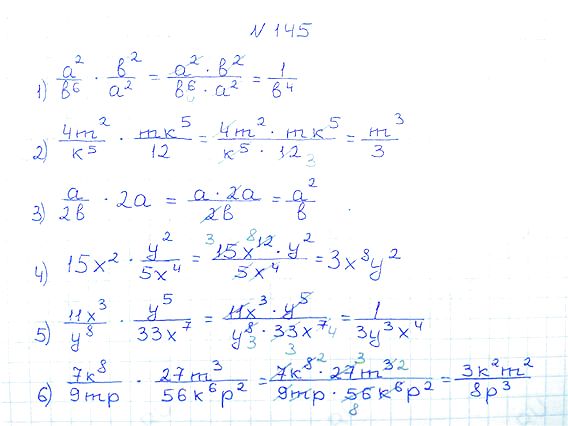 N 145
1) a²/b⁶ · b²/a² = a² · b²/b⁶ · a² = 1/b⁴
2) 4m²/k⁵ · mk⁵/12 = 4m² · mk⁵/k⁵ · 12 3 = m³/3
3) a/2b · 2a = a · 2a/2b = a²/b
4) 15x² · y²/5x⁴ = 3 15x¹² 8 · y²/5x⁴ = 3x⁸y²
5) 11x³/y⁸ · y⁵/33x⁷ = 11x³ · y⁵/y⁸ 3 · 33 3 x⁷ 4 = 1/3y³x⁴
6) 7k⁸/9mp · 27m³/56k⁶p² = 7k⁸ 2 · 27 3 m³ 2/9mp · 56 8 k⁶p² = 3k²m²/8p³